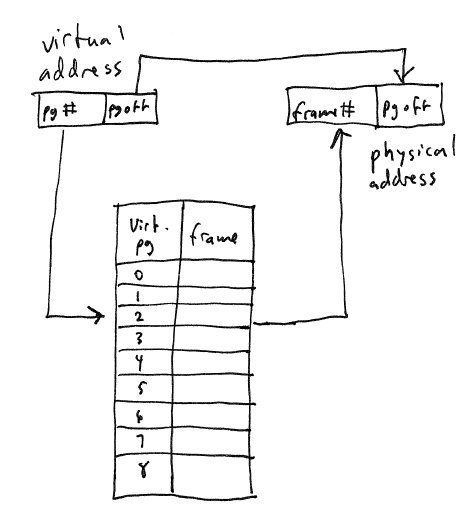 virtual
address
pg # pgoff
frame# pgoff
physical
address
virt. frame
pg
0
1
2
3
4
5
6
7
8